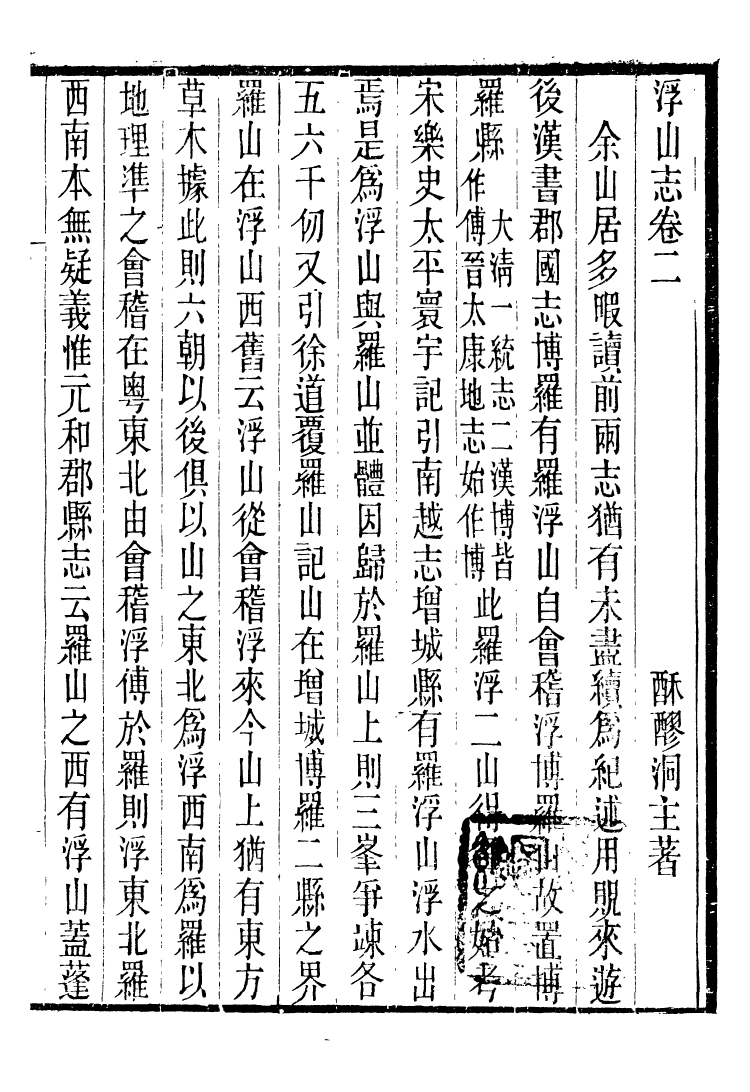 浮山志卷二
酥醪洞主著
余山居多暇讀前兩志猶有未盡續爲紀述用貺來遊
後漢書郡國志博羅有羅浮山自會稽浮博羅山故置博
羅縣
大淸一統志二漢博皆
作傅晉太康地志始作博
此羅浮二山得名之始考
宋樂史太平寰宇記引南越志增城縣有羅浮山浮水出
焉是爲浮山與羅山並體因歸於羅山上則三峯爭竦各
五六千仞又引徐道覆羅山記山在增城博羅二縣之界
羅山在浮山西舊云浮山從會稽浮來今山上猶有東方
草木據此則六朝以後俱以山之東北爲浮西南爲羅以
地理準之會稽在粤東北由會稽浮傅於羅則浮東北羅
西南本無疑義惟元和郡縣志云羅山之西有浮山蓋蓬